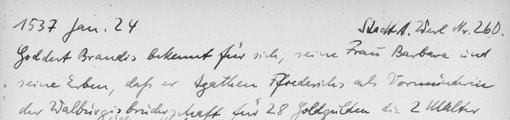 1537 Jan. 24 Stadt A. Werl Nr. 260.
Goddert Brandis bekennt für sich, seine Frau Barbara und
seine Erben, daß er Agathen Frederichs als Vormünderin
der Walburgisbruderschaft für 28 Goldgulden die 2 Malter